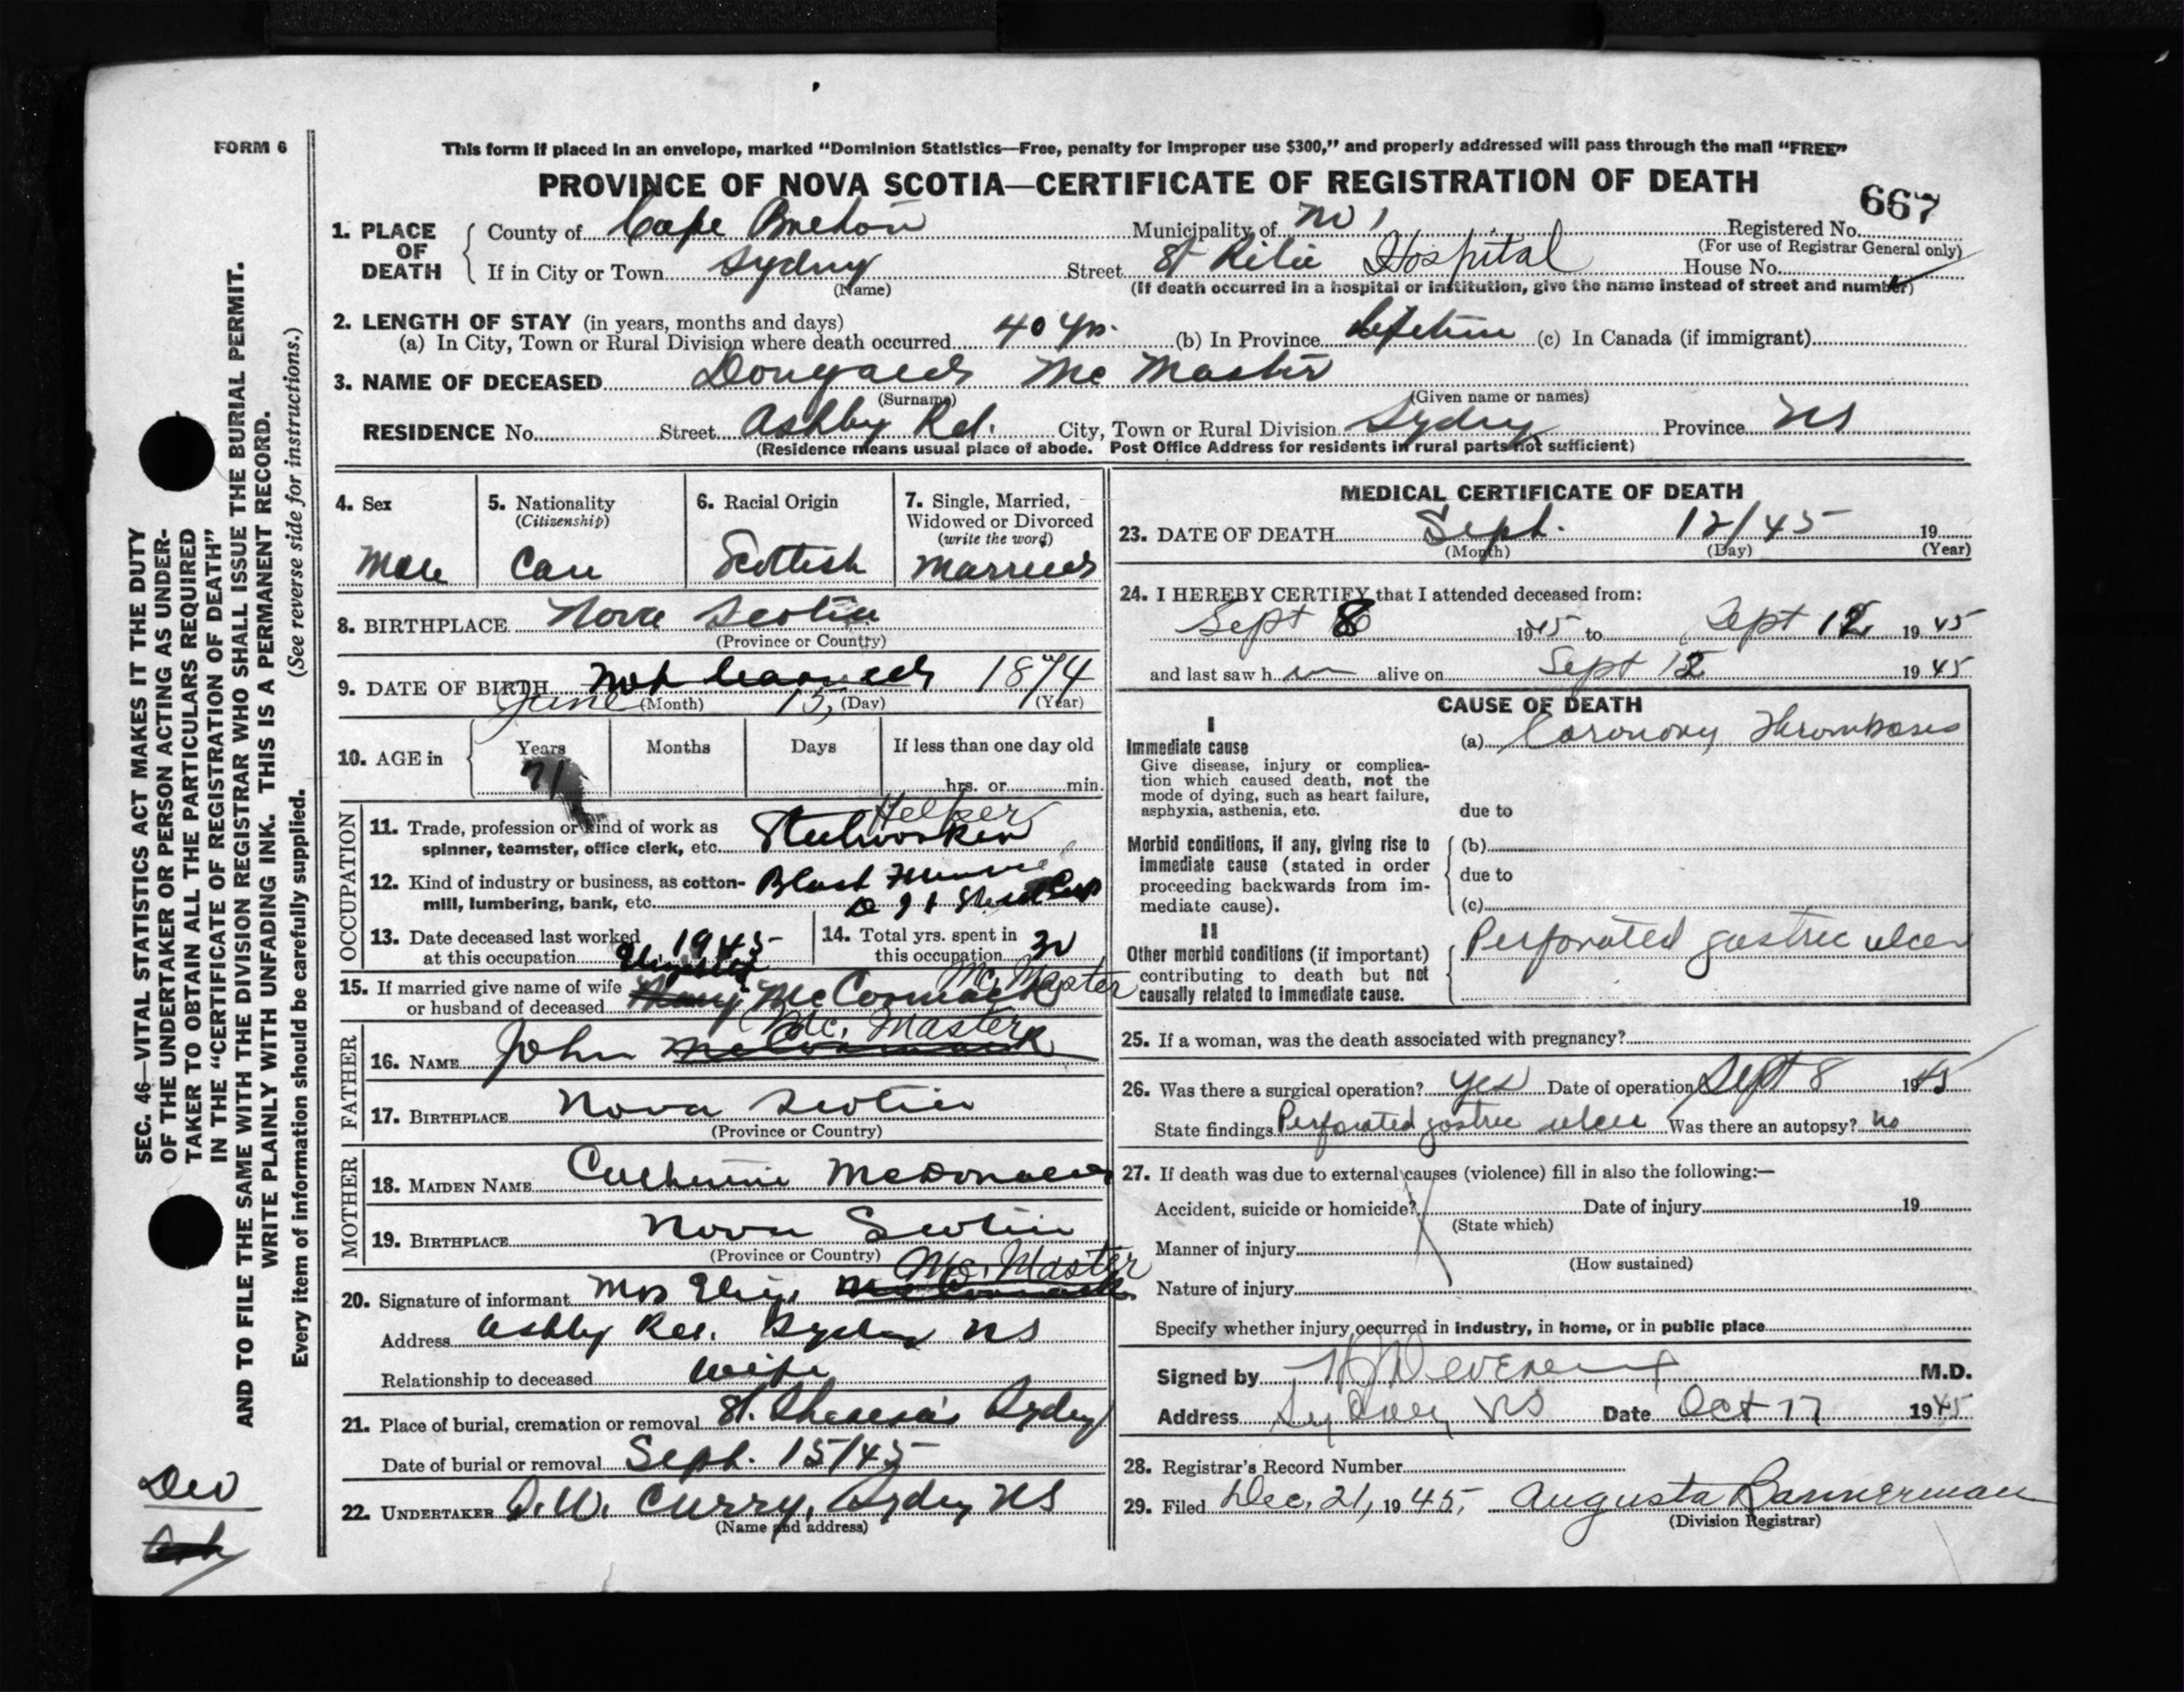 FORM 6
This form if placed in an envelope, marked “Dominion Statistics—Free, penalty for improper use $300,” and properly addressed will pass through the mail “FREE”
PROVINCE OF NOVA SCOTIA—CERTIFICATE OF REGISTRATION OF DEATH
667
1. PLACE OF DEATH
County of Cape Breton Municipality of Registered No.
(For use of Registrar General only)
If in City or Town Sydney Street St Hospital House No.
(Name) (If death occurred in a hospital or institution, give the name instead of street and number)
2. LENGTH OF STAY (in years, months and days)
(a) In City, Town or Rural Division where death occurred 40 yrs. (b) In Province lifetime (c) In Canada (if immigrant)
3. NAME OF DECEASED Dougald Mc Master
(Surname) (Given name or names)
RESIDENCE No. Street Ashby Rd. City, Town or Rural Division Sydney Province NS
(Residence means usual place of abode. Post Office Address for residents in rural parts not sufficient)
4. Sex
Male
5. Nationality
(Citizenship)
Can
6. Racial Origin
Scottish
7. Single, Married, Widowed or Divorced
(write the word)
Married
8. BIRTHPLACE Nova Scotia
(Province or Country)
9. DATE OF BIRTH Not 1874
June (Month) 15, (Day) (Year)
10. AGE in
Years Months Days If less than one day old
71 hrs. or min.
OCCUPATION
Helper
11. Trade, profession or kind of work as spinner, teamster, office clerk, etc. Steelworker
12. Kind of industry or business, as cotton-mill, lumbering, bank, etc. Blast
13. Date deceased last worked at this occupation 1945
14. Total yrs. spent in this occupation
Mc. Master
15. If married give name of wife or husband of deceased Mary McCormack
FATHER
Mc. Master
16. NAME John McCormack
17. BIRTHPLACE Nova Scotia
(Province or Country)
MOTHER
18. MAIDEN NAME Catherine McDonald
19. BIRTHPLACE Nova Scotia
(Province or Country)
Mc. Master
20. Signature of informant Mrs McCormack
Address Ashby Rd. Sydney NS
Relationship to deceased wife
21. Place of burial, cremation or removal St. Theresa's Sydney
Date of burial or removal Sept. 15/45
22. UNDERTAKER D.W. Curry, Sydney NS
(Name and address)
MEDICAL CERTIFICATE OF DEATH
23. DATE OF DEATH Sept. 12/45 19
(Month) (Day) (Year)
24. I HEREBY CERTIFY that I attended deceased from:
Sept 8 1945 to Sept 12 1945
and last saw h im alive on Sept 12 1945
CAUSE OF DEATH
I
Immediate cause
Give disease, injury or complication which caused death, not the mode of dying, such as heart failure, asphyxia, asthenia, etc.
(a) Coronary Thrombosis
due to
Morbid conditions, if any, giving rise to immediate cause (stated in order proceeding backwards from immediate cause).
(b)
due to
(c)
II
Other morbid conditions (if important) contributing to death but not causally related to immediate cause.
Perforated gastric ulcer
25. If a woman, was the death associated with pregnancy?
26. Was there a surgical operation? yes Date of operation Sept 8 1945
State findings Perforated gastric ulcer Was there an autopsy? no
27. If death was due to external causes (violence) fill in also the following:—
Accident, suicide or homicide? Date of injury 19
(State which)
Manner of injury
(How sustained)
Nature of injury
Specify whether injury occurred in industry, in home, or in public place
Signed by M.D.
Address Sydney NS Date Oct 17 1945
28. Registrar's Record Number
29. Filed Dec. 21, 1945, Augusta Bannerman
(Division Registrar)
SEC. 46—VITAL STATISTICS ACT MAKES IT THE DUTY
OF THE UNDERTAKER OR PERSON ACTING AS UNDER-
TAKER TO OBTAIN ALL THE PARTICULARS REQUIRED
IN THE “CERTIFICATE OF REGISTRATION OF DEATH”
AND TO FILE THE SAME WITH THE DIVISION REGISTRAR WHO SHALL ISSUE THE BURIAL PERMIT.
WRITE PLAINLY WITH UNFADING INK. THIS IS A PERMANENT RECORD.
Every item of information should be carefully supplied. (See reverse side for instructions.)